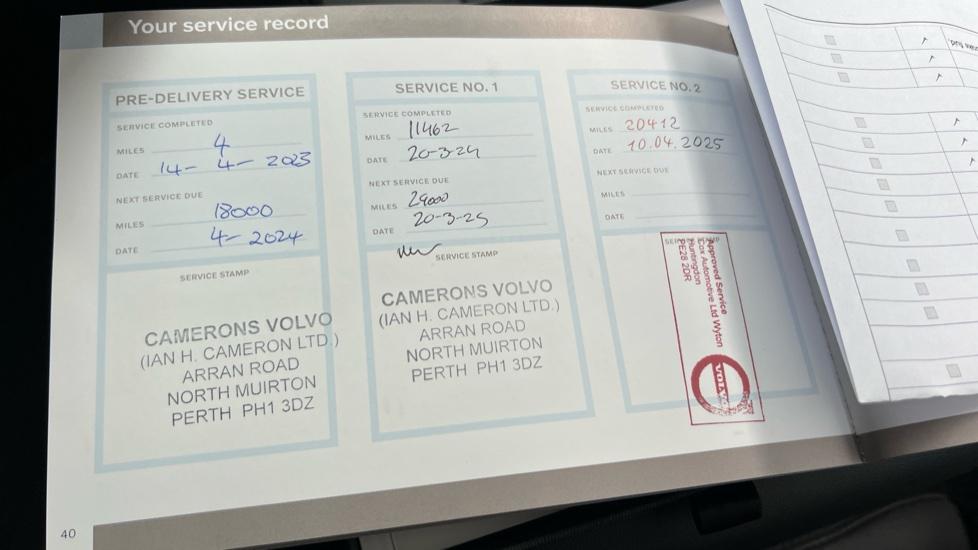 Your service record
PRE-DELIVERY SERVICE
SERVICE COMPLETED
MILES 4
DATE 14- 4- 2023
NEXT SERVICE DUE
MILES 18000
DATE 4- 2024
SERVICE STAMP
CAMERONS VOLVO
(IAN H. CAMERON LTD.)
ARRAN ROAD
NORTH MUIRTON
PERTH PH1 3DZ
SERVICE NO. 1
SERVICE COMPLETED
MILES 11462
DATE 20-3-24
NEXT SERVICE DUE
MILES 29000
DATE 20-3-25
SERVICE STAMP
CAMERONS VOLVO
(IAN H. CAMERON LTD.)
ARRAN ROAD
NORTH MUIRTON
PERTH PH1 3DZ
SERVICE NO. 2
SERVICE COMPLETED
MILES 20412
DATE 10.04.2025
NEXT SERVICE DUE
MILES
DATE
Approved Service
Cox Automotive Ltd Wyton
Huntingdon
PE28 2DR
VOLVO
40